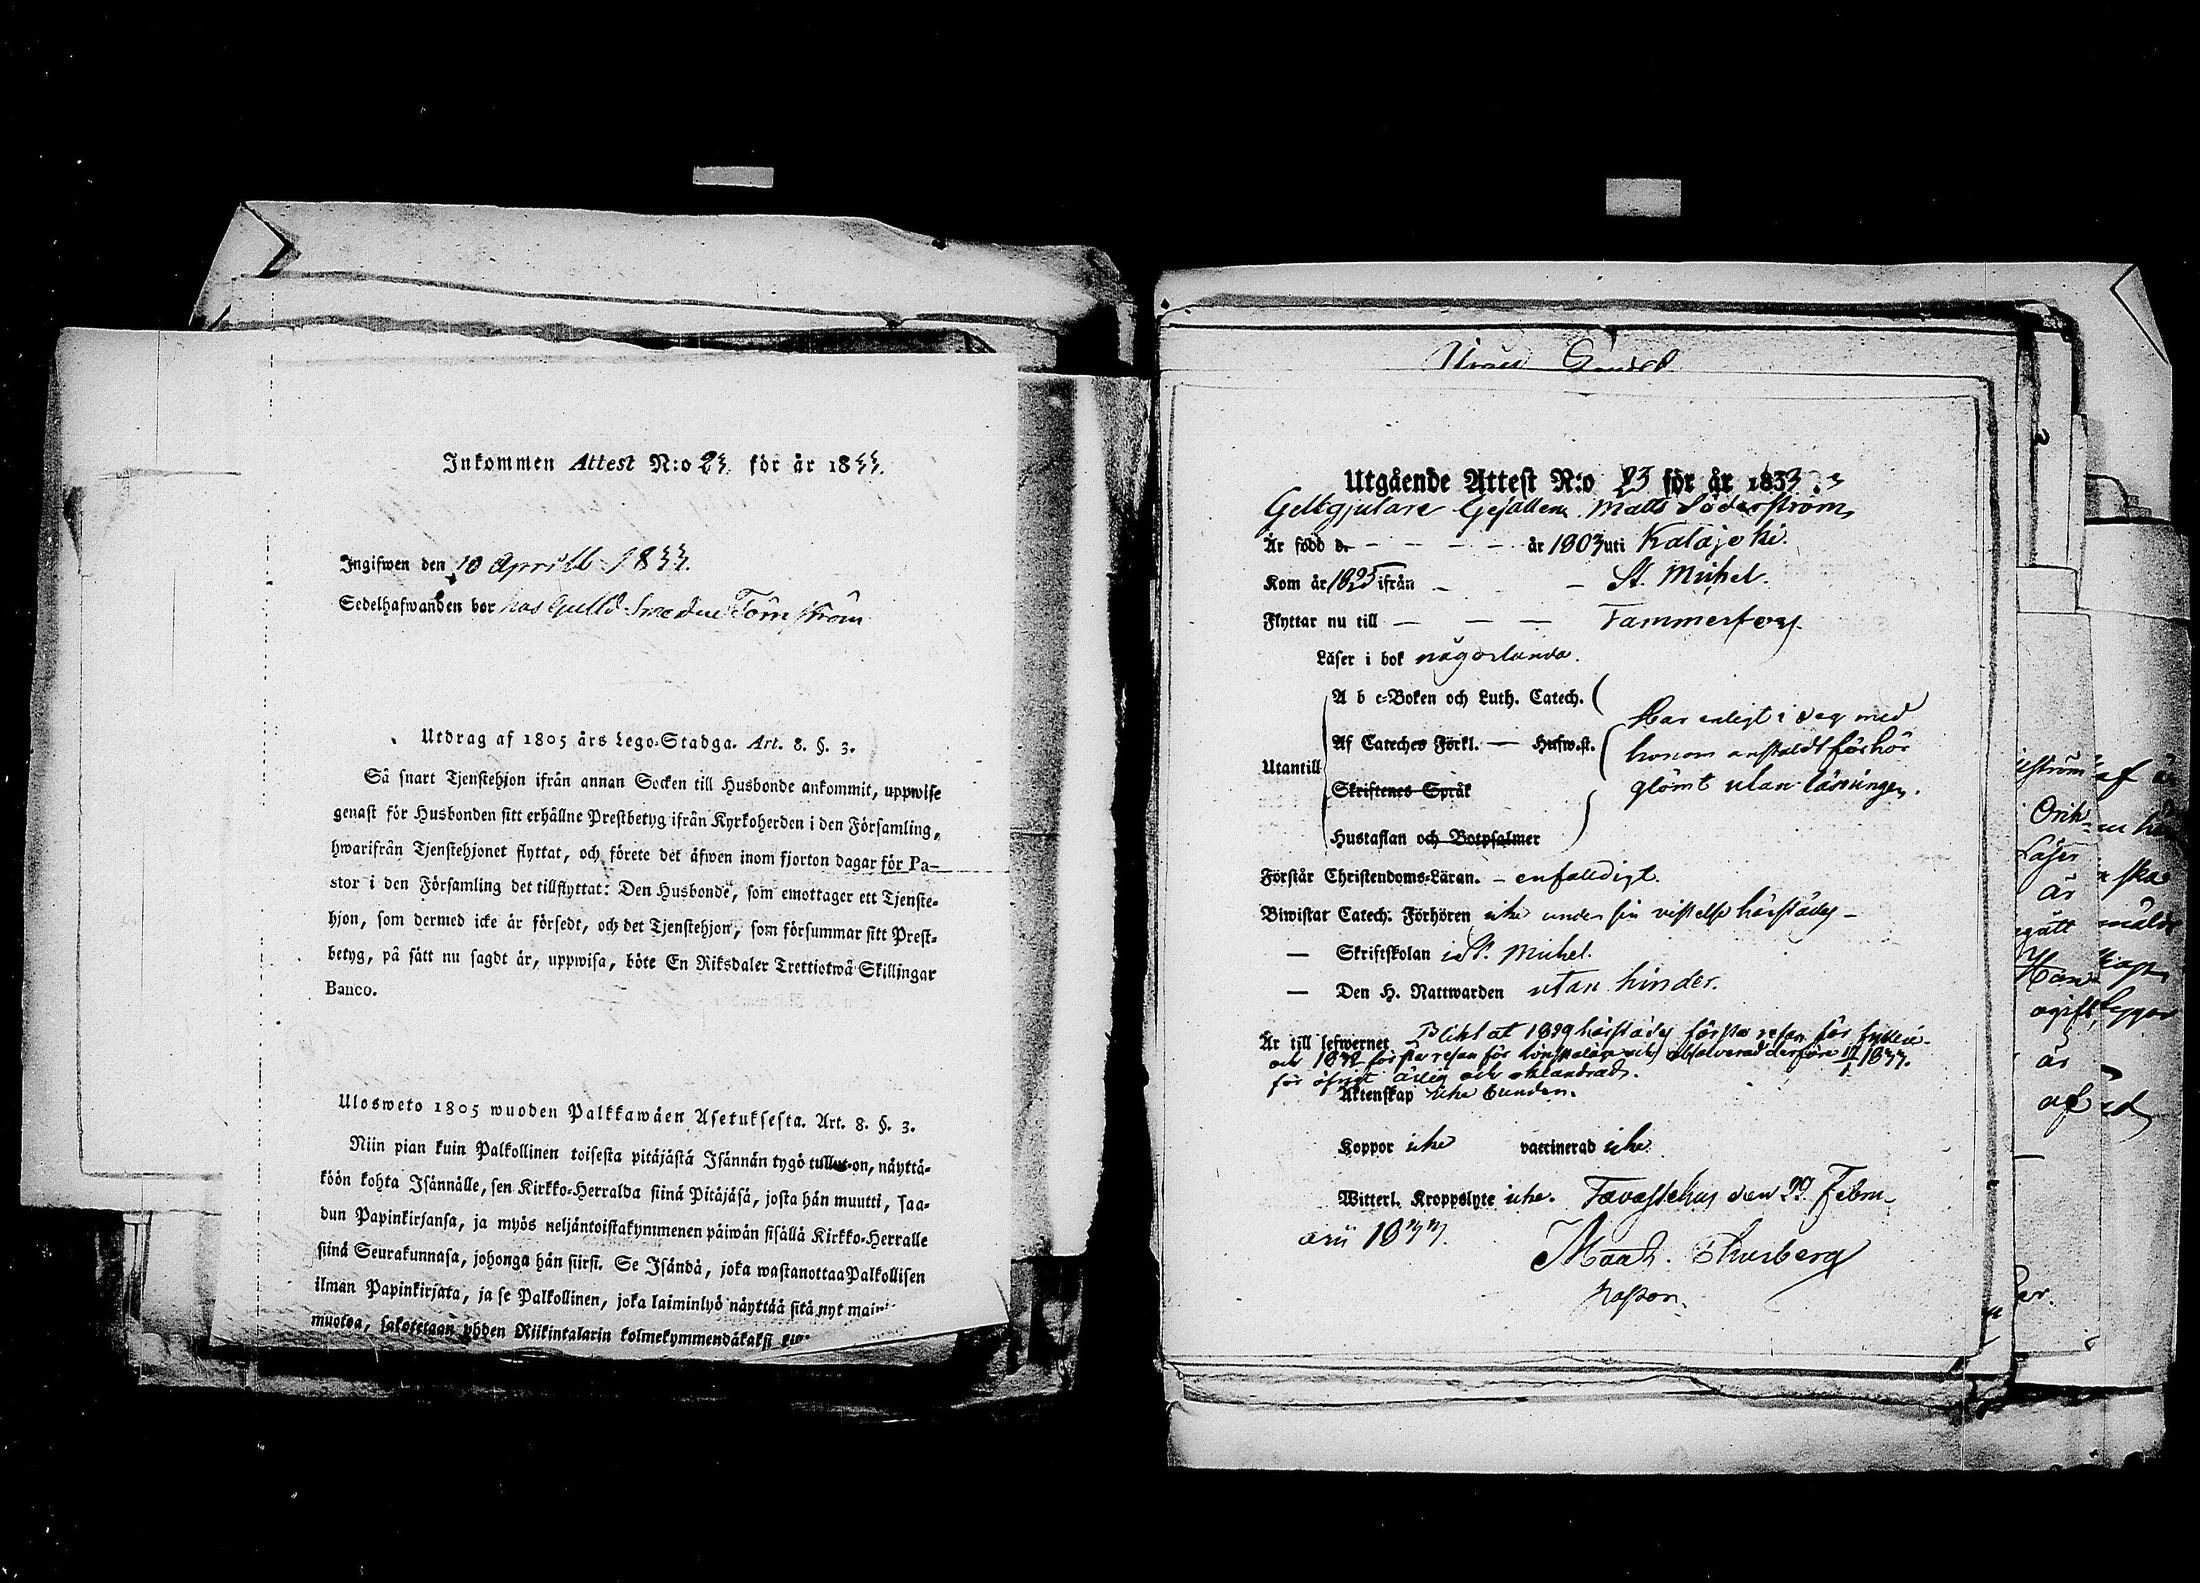 Inkommen Attest N:o 23. för år 1833.
Ingifwen den 10 Aprill 1833.
Sedelhafwanden bor hos Gulld Smeden Törnström
Utdrag af 1805 års Lego-Stadga. Art. 8. §. 3.
Så snart Tjenstehjon ifrån annan Socken till Husbonde ankommit, uppwise
genast för Husbonden sitt erhållne Prestbetyg ifrån Kyrkoherden i den Församling,
hwarifrån Tjenstehjonet flyttat, och förete det äfwen inom fjorton dagar för Pa-
stor i den Församling det tillflyttat: Den Husbonde, som emottager ett Tjenste-
hjon, som dermed icke är försedt, och det Tjenstehjon, som försummar sitt Prest-
betyg, på sätt nu sagdt är, uppwisa, böte En Riksdaler Trettiotwå Skillingar
Banco.
Ulosweto 1805 wuoden Palkkawäen Asetuksesta. Art. 8. §. 3.
Niin pian kuin Palkollinen toisesta pitäjästä Isännän tygö tullut on, näyttä-
köön kohta Isännälle, sen Kirkko-Herralda siinä Pitäjäsä, josta hän muutti, saa-
dun Papinkirjansa, ja myös neljäntoistakymmenen päiwän sisällä Kirkko-Herralle
siinä Seurakunnasa, johonga hän siirsi. Se Isändä, joka wastanottaa Palkollisen
ilman Papinkirjata, ja se Palkollinen, joka laiminlyö näyttää sitä nyt
muotoa, sakotetaan yhden Riikintalarin kolmekymmendäkaksi
Utgående Attest N:o 23 för år 1833
Gelbgjutare Gesällen Matts Söderström,
Är född d. - - - - år 1803 uti Kalajoki.
Kom år 1825 ifrån - - St. Michel.
Flyttar nu till - - - Tammerfors.
Läser i bok någorlunda.
A b c-Boken och Luth. Catech.
Af Cateches Förkl. — Husw.st.
Utantill
Skriftenes Språk
Hustaflan och Botpsalmer
Har enligt i dag med
honom anstaldt förhör
glömt utan läsningen.
Förstår Christendoms-Läran. - enfalldigt.
Biwistat Catech. Förhören icke under sin vistelse härstädes -
— Skriftskolan i St. Michel.
— Den H. Nattwarden utan hinder.
Är till lefwernet Plikt at 1829 härstädes första resan för fylleri
och 1832 första resan för och absolverad derföre 1833.
för öfrigt ärlig och oklandrad.
Äktenskap icke bunden.
Koppor icke vaccinerad icke.
Witterl. Kroppslyte icke. Tavastehus den 29 Febru-
arii 1833.
Thusberg
Pastor.